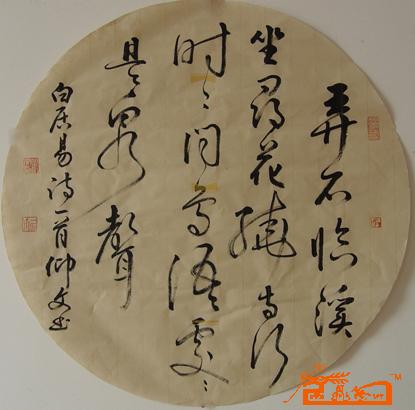 弄石临溪
坐尋花繞寺行
时々闻鸟语处々
是泉聲
白居易诗一首仰文书
TM